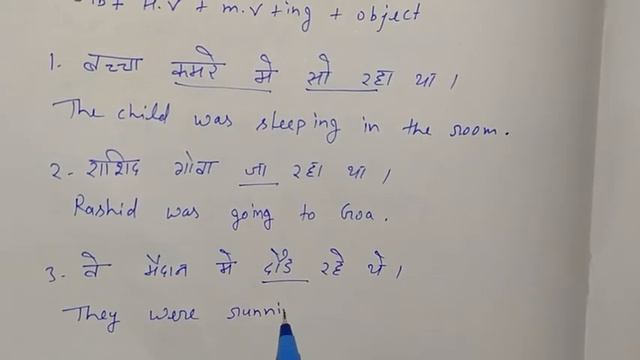 + H.V + m.v + ing + object
1. बच्चा कमरे मे सो रहा था।
The child was sleeping in the room.
2. राशिद गोवा जा रहा था।
Rashid was going to Goa.
3. वे मैदान मे दौड रहे थे।
They were runni